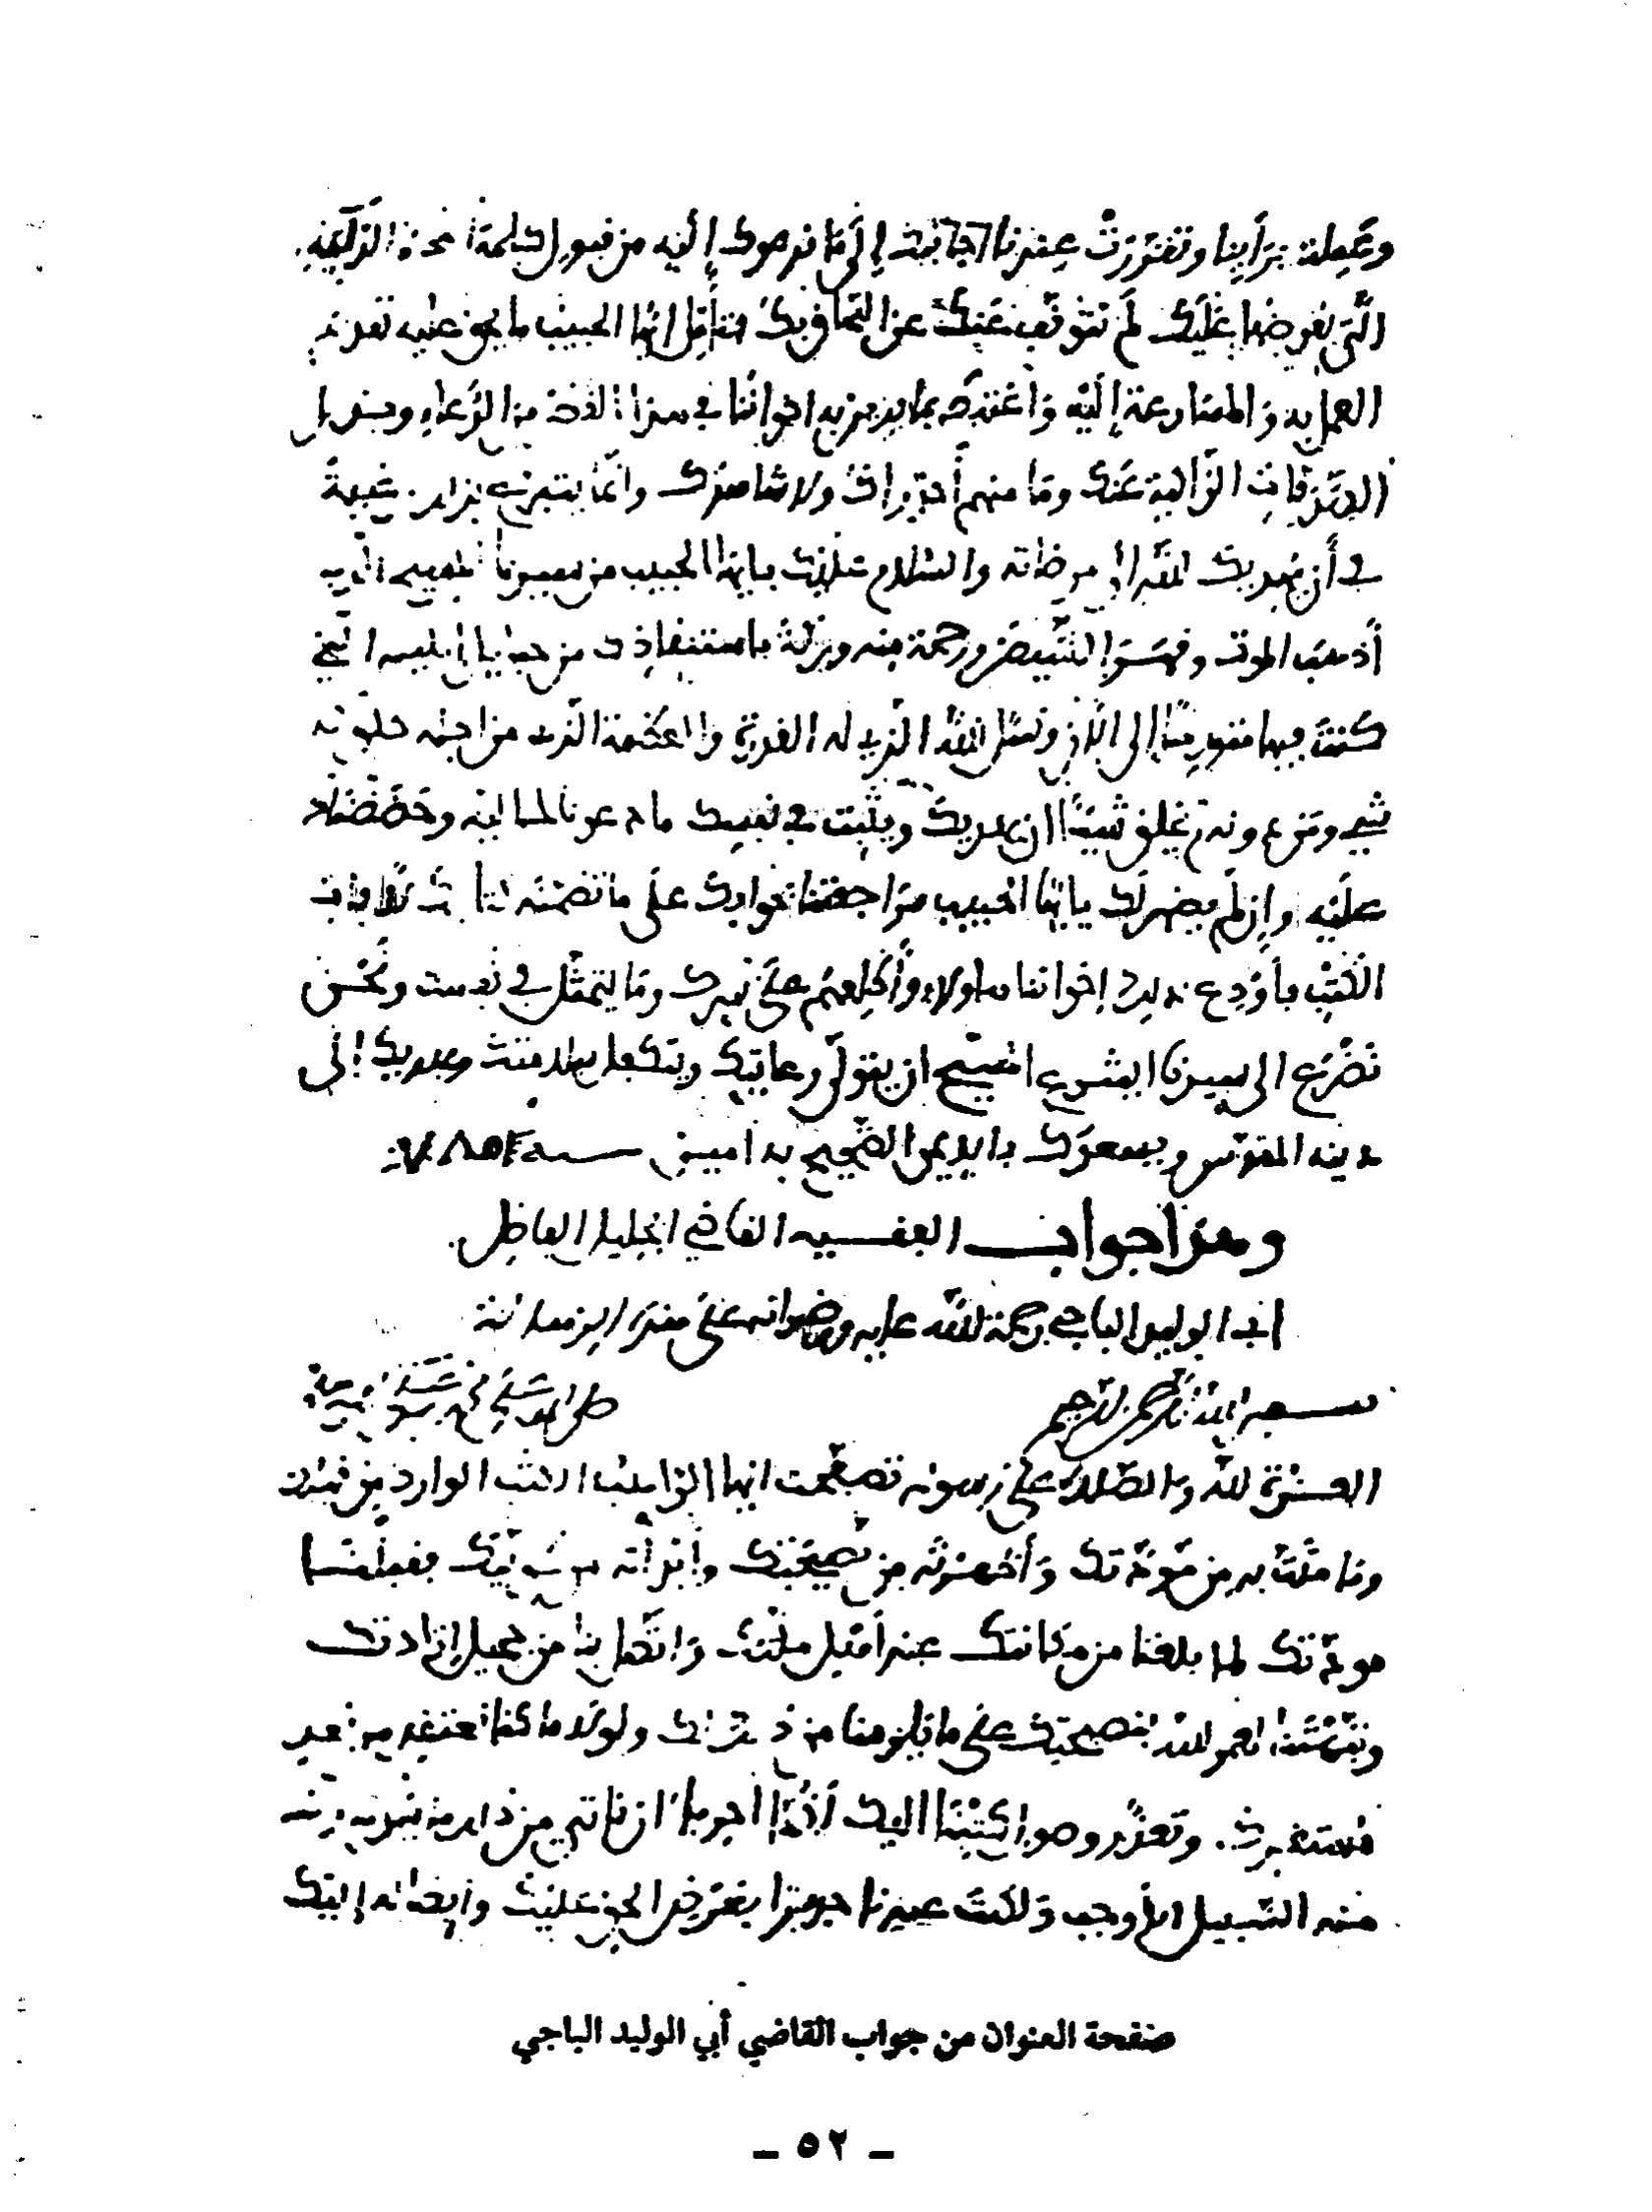 وعملت برأينا وتقررت عندنا إجابتك إلى ما ندعوك إليه من قبول كلمة الله
التي نعرضها عليك لم نتوقف عنك عن اللحاق بك فتأمل أيها الحبيب ما يحق عليك تقديم
العمل به والمسارعة إليه واغتبط بما يرغب به إخواننا في هذا من الدعاء وبذل
الصدقات الزاكية عنك وما منهم أحد رآك ولا شاهدك وإنما يتبرع بذلك رغبة
في أن يهديك الله إلى مرضاته والسلام عليك يا أيها الحبيب من سيدنا المسيح الذي
أذهب الموت وقهر ورحمة منه وبركة باستنقاذك من حبايل إبليس التي
كنت فيها متورطا إلى الآن ونسل الله الذي له القدرة والعظمة الذي من أجله كل
شيء ومن دونه لم يخلق شيئا أن يهديك ويثبت في نفسك ما دعوناك إليه وحضضناك
عليه وإن لم يظهر لك يا أيها الحبيب مراجعتنا بجوابك على ما تضمنه
الكتب فأودع إخواننا هاولاء وأطلعهم على سرك وما يتمثل في نفسك ونحن
نضرع إلى سيدنا ايشوع المسيح أن يتولى رعايتك ويتكفل سلامتك ويهديك إلى
دينه المقدس ويسعدك بالإيمان الصحيح به آمين
وهذا جواب الفقيه القاضي الجليل الفاضل
أبو الوليد الباجي رحمة الله عليه ورضوانه على هذه الرسالة
بسم الله الرحمن الرحيم صلى الله على
العزة لله والصلاة على رسوله تصفحت أيها الراهب الكتاب الوارد من قبلك
وما متت به من مودتك وأظهرته من نصيحتك وأبديته من نيتك فقبلنا
مودتك لما بلغنا من مكانتك عند أهل ملتك واتصل بنا من جميل إرادتك
ونبهتنا لعمر الله بنصيحتك على ما يلزمنا من ذلك ولولا ما كنا نعتقده من بعد
مستقرك وتعذر وصول كتبنا إليك لكنا أحرياء أن نأتي من ذلك
منه السبيل الأوجب ولكنت عندنا جديرا بعرض الحق عليك وإيصاله إليك
صفحة العنوان من جواب القاضي أبي الوليد الباجي
- ٥٢ -